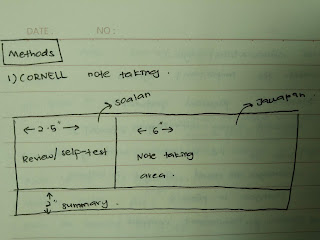 DATE: NO:
Methods
1) CORNELL note taking.
soalan
Jawapan
← 2.5" →
← 6" →
Review/self-test
Note taking
area.
2" summary.